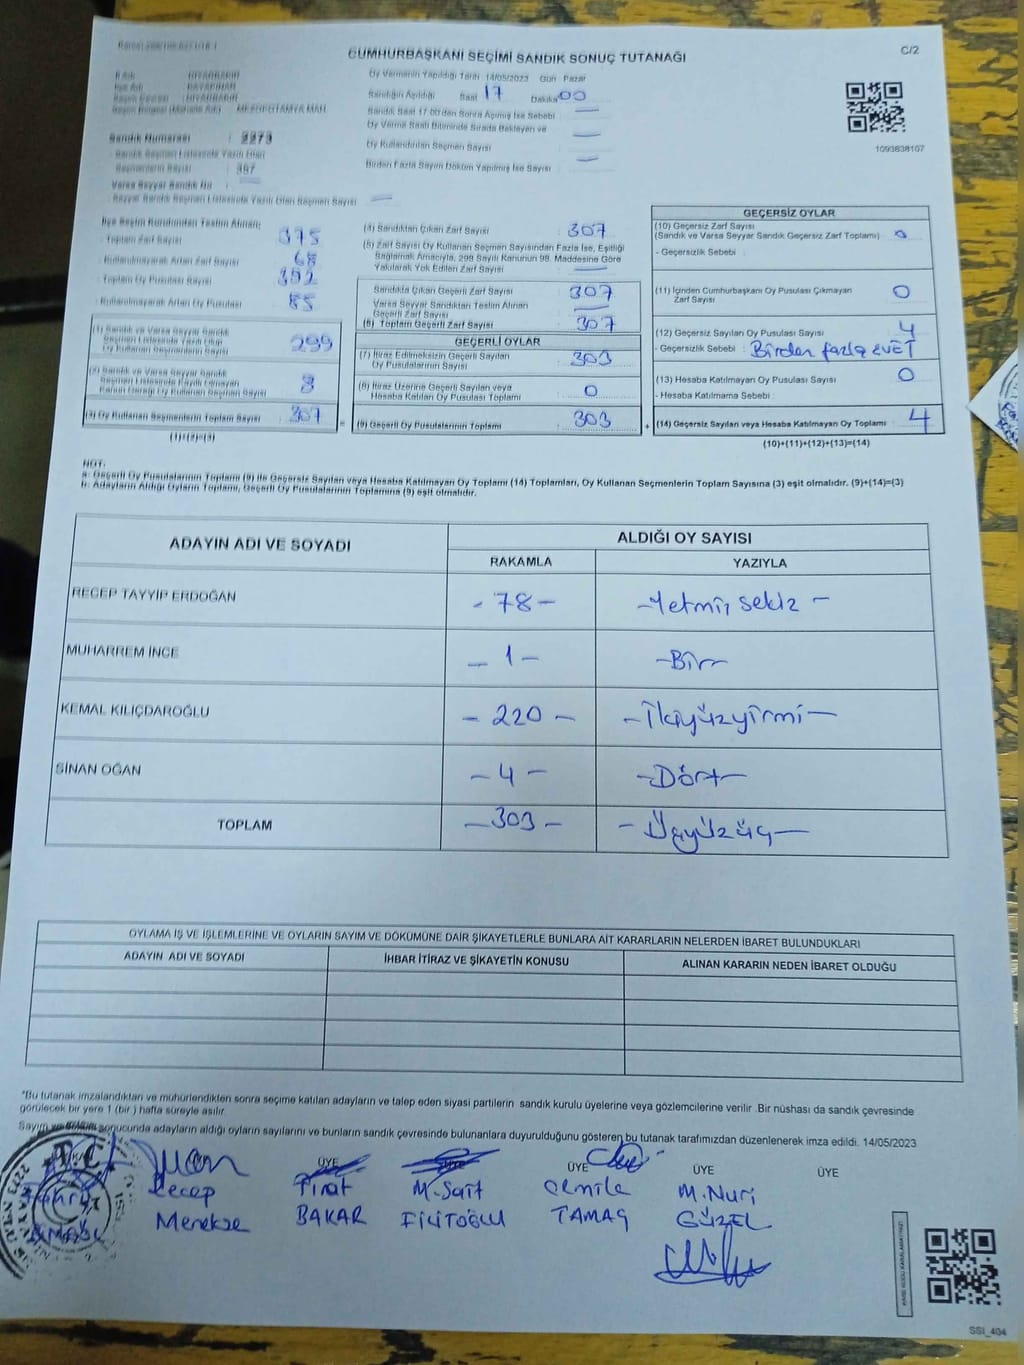 CUMHURBAŞKANI SEÇİMİ SANDIK SONUÇ TUTANAĞI
C/2
Oy Vermenin Yapıldığı Tarih 14/05/2023 Gün Pazar
Sandığın Açıldığı Saat 17 Dakika 00
Sandık Saat 17:00'den Sonra Açılmış İse Sebebi
Oy Verme Saati Bitiminde Sırada Bekleyen ve
Oy Kullandırılan Seçmen Sayısı
Birden Fazla Sayım Döküm Yapılmış İse Sayısı
1093638107
MESOPOTAMYA MAH.
Sandık Numarası : 2273
Sandık Seçmen Listesinde Yazılı Olan
Seçmenlerin Sayısı : 367
Varsa Seyyar Sandık No :
Seyyar Sandık Seçmen Listesinde Yazılı Olan Seçmen Sayısı
İlçe Seçim Kurulundan Teslim Alınan;
- Toplam Zarf Sayısı 375
- Kullanılmayarak Artan Zarf Sayısı 68
- Toplam Oy Pusulası Sayısı 392
- Kullanılmayarak Artan Oy Pusulası 85
(1) Sandık ve Varsa Seyyar Sandık
Seçmen Listesinde Yazılı Olup
Oy Kullanan Seçmenlerin Sayısı 299
(2) Sandık ve Varsa Seyyar Sandık
Seçmen Listesinde Kayıtlı Olmayan
Kanun Gereği Oy Kullanan Seçmen Sayısı 8
(3) Oy Kullanan Seçmenlerin Toplam Sayısı 307
(1)+(2)=(3)
(4) Sandıktan Çıkan Zarf Sayısı 307
(5) Zarf Sayısı Oy Kullanan Seçmen Sayısından Fazla İse, Eşitliği
Sağlamak Amacıyla, 298 Sayılı Kanunun 98. Maddesine Göre
Yakılarak Yok Edilen Zarf Sayısı
Sandıkta Çıkan Geçerli Zarf Sayısı 307
Varsa Seyyar Sandıktan Teslim Alınan
Geçerli Zarf Sayısı
(6) Toplam Geçerli Zarf Sayısı 307
GEÇERLİ OYLAR
(7) İtiraz Edilmeksizin Geçerli Sayılan
Oy Pusulalarının Sayısı 303
(8) İtiraz Üzerine Geçerli Sayılan veya
Hesaba Katılan Oy Pusulası Toplamı 0
= (9) Geçerli Oy Pusulalarının Toplamı 303
GEÇERSİZ OYLAR
(10) Geçersiz Zarf Sayısı
(Sandık ve Varsa Seyyar Sandık Geçersiz Zarf Toplamı) 0
- Geçersizlik Sebebi :
(11) İçinden Cumhurbaşkanı Oy Pusulası Çıkmayan
Zarf Sayısı 0
(12) Geçersiz Sayılan Oy Pusulası Sayısı 4
- Geçersizlik Sebebi : Birden fazla EVET
(13) Hesaba Katılmayan Oy Pusulası Sayısı 0
- Hesaba Katılmama Sebebi :
+ (14) Geçersiz Sayılan veya Hesaba Katılmayan Oy Toplamı 4
(10)+(11)+(12)+(13)=(14)
NOT:
a- Geçerli Oy Pusulalarının Toplamı (9) ile Geçersiz Sayılan veya Hesaba Katılmayan Oy Toplamı (14) Toplamları, Oy Kullanan Seçmenlerin Toplam Sayısına (3) eşit olmalıdır. (9)+(14)=(3)
b- Adayların Aldığı Oyların Toplamı, Geçerli Oy Pusulalarının Toplamına (9) eşit olmalıdır.
ADAYIN ADI VE SOYADI
ALDIĞI OY SAYISI
RAKAMLA
YAZIYLA
RECEP TAYYİP ERDOĞAN - 78 - - Yetmiş sekiz -
MUHARREM İNCE - 1 - - Bir -
KEMAL KILIÇDAROĞLU - 220 - - İkiyüzyirmi -
SİNAN OĞAN - 4 - - Dört -
TOPLAM - 303 - - Üçyüzüç -
OYLAMA İŞ VE İŞLEMLERİNE VE OYLARIN SAYIM VE DÖKÜMÜNE DAİR ŞİKAYETLERLE BUNLARA AİT KARARLARIN NELERDEN İBARET BULUNDUKLARI
ADAYIN ADI VE SOYADI
İHBAR İTİRAZ VE ŞİKAYETİN KONUSU
ALINAN KARARIN NEDEN İBARET OLDUĞU
*Bu tutanak imzalandıktan ve mühürlendikten sonra seçime katılan adayların ve talep eden siyasi partilerin sandık kurulu üyelerine veya gözlemcilerine verilir .Bir nüshası da sandık çevresinde
görülecek bir yere 1 (bir ) hafta süreyle asılır.
Sayım ve döküm sonucunda adayların aldığı oyların sayılarını ve bunların sandık çevresinde bulunanlara duyurulduğunu gösteren bu tutanak tarafımızdan düzenlenerek imza edildi. 14/05/2023
T.C.
ÜYE ÜYE ÜYE ÜYE
Recep Fırat M.Sait Cemile M.Nuri
Menekşe BAKAR TAMAÇ GÜZEL
SSI_404